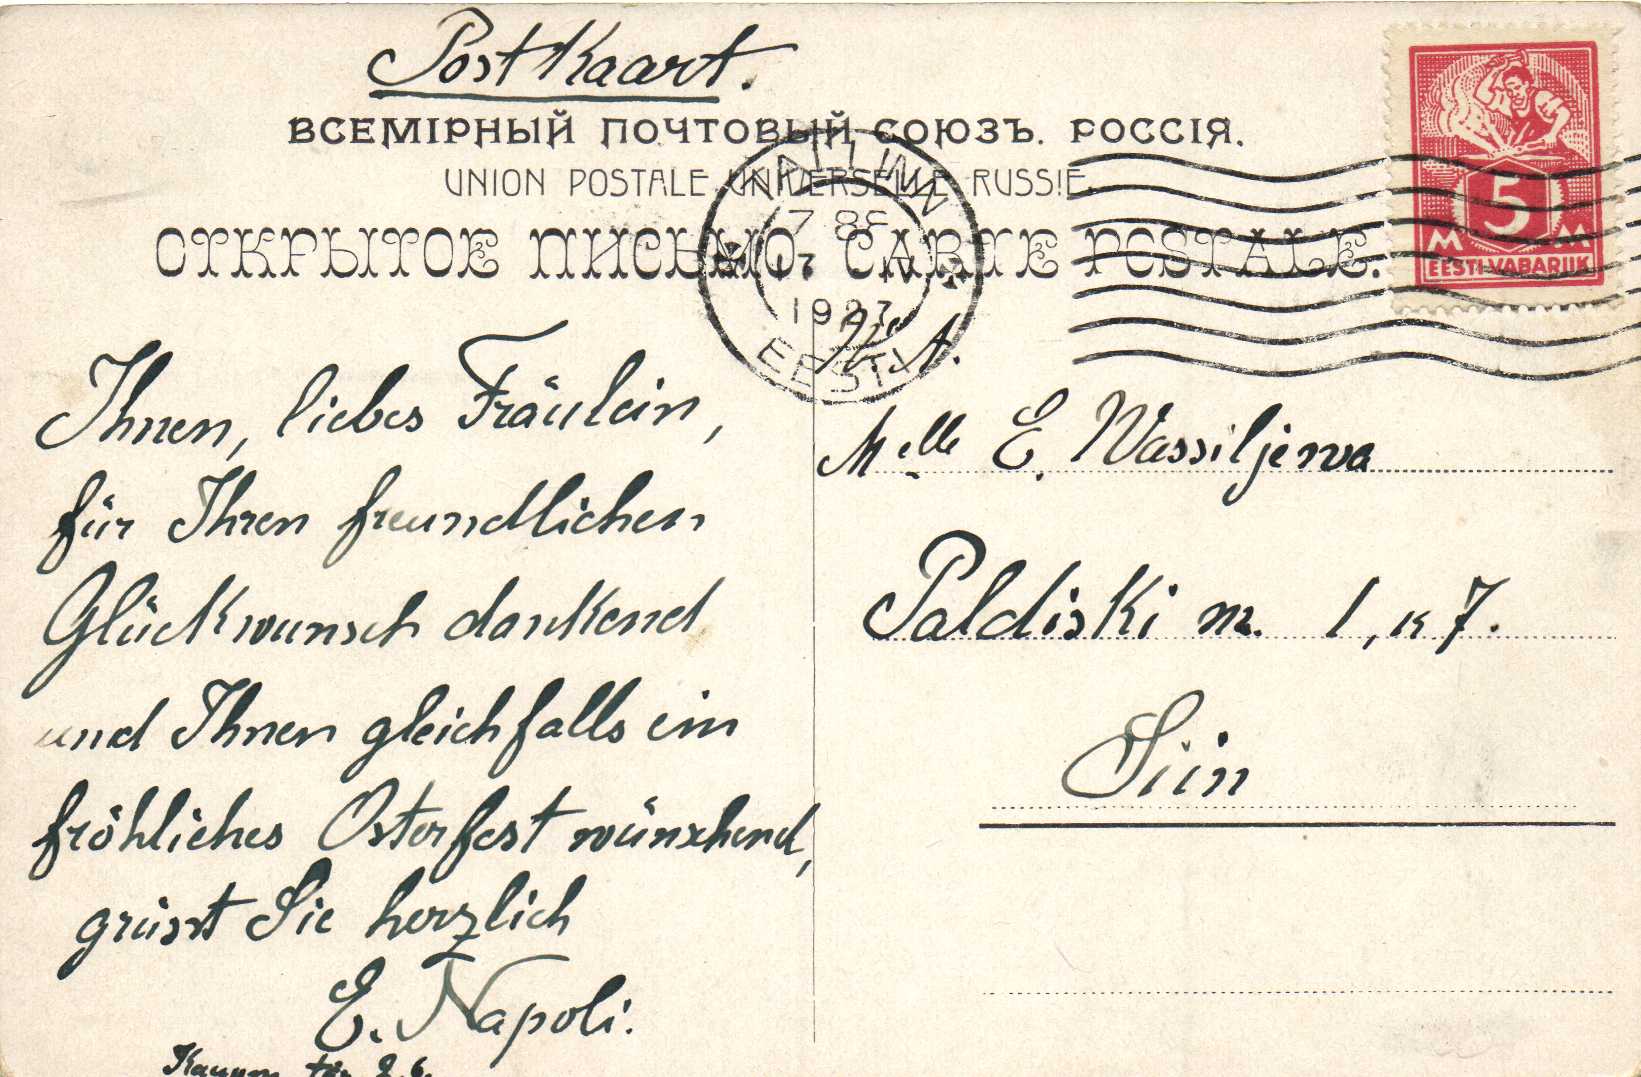 Postkaart.
ВСЕМІРНЫЙ ПОЧТОВЫЙ СОЮЗЪ. РОССІЯ.
UNION POSTALE UNIVERSELLE RUSSIE.
ОТКРЫТОЕ ПИСЬМО. CARTE POSTALE.
TALLINN
17 IV
1927
EESTI
5
M M
EESTI VABARIIK
Ihnen, liebes Fräulein,
für Ihren freundlichen
Glückwunsch dankend
und Ihnen gleichfalls ein
fröhliches Osterfest wünschend,
grüsst Sie herzlich
E. Napoli.
Melle E. Wassiljewa
Paldiski m. 1, k 7.
Siin